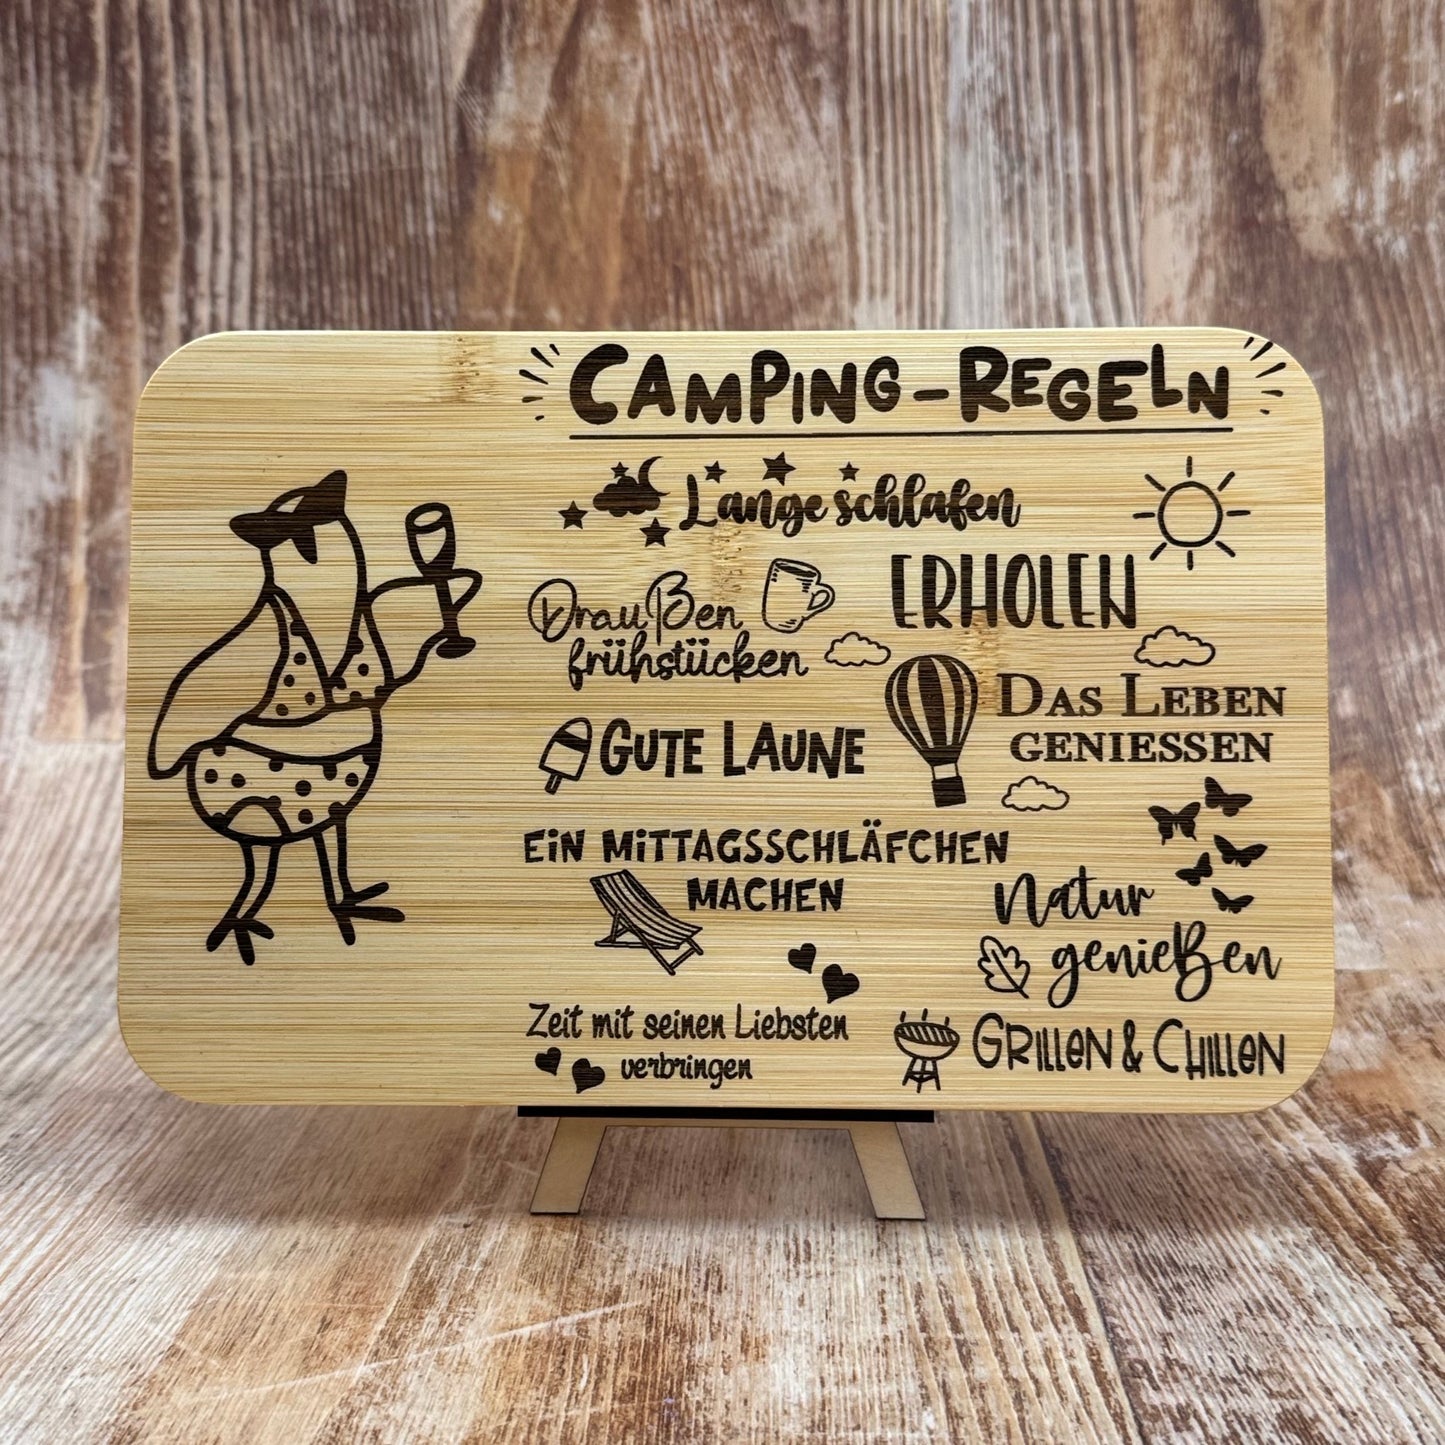 CAMPING-REGELN
Lange schlafen
ERHOLEN
Draußen
frühstücken
DAS LEBEN
GENIESSEN
GUTE LAUNE
EIN MITTAGSSCHLÄFCHEN
MACHEN
Natur
genießen
Zeit mit seinen Liebsten
verbringen
GRILLEN & CHILLEN